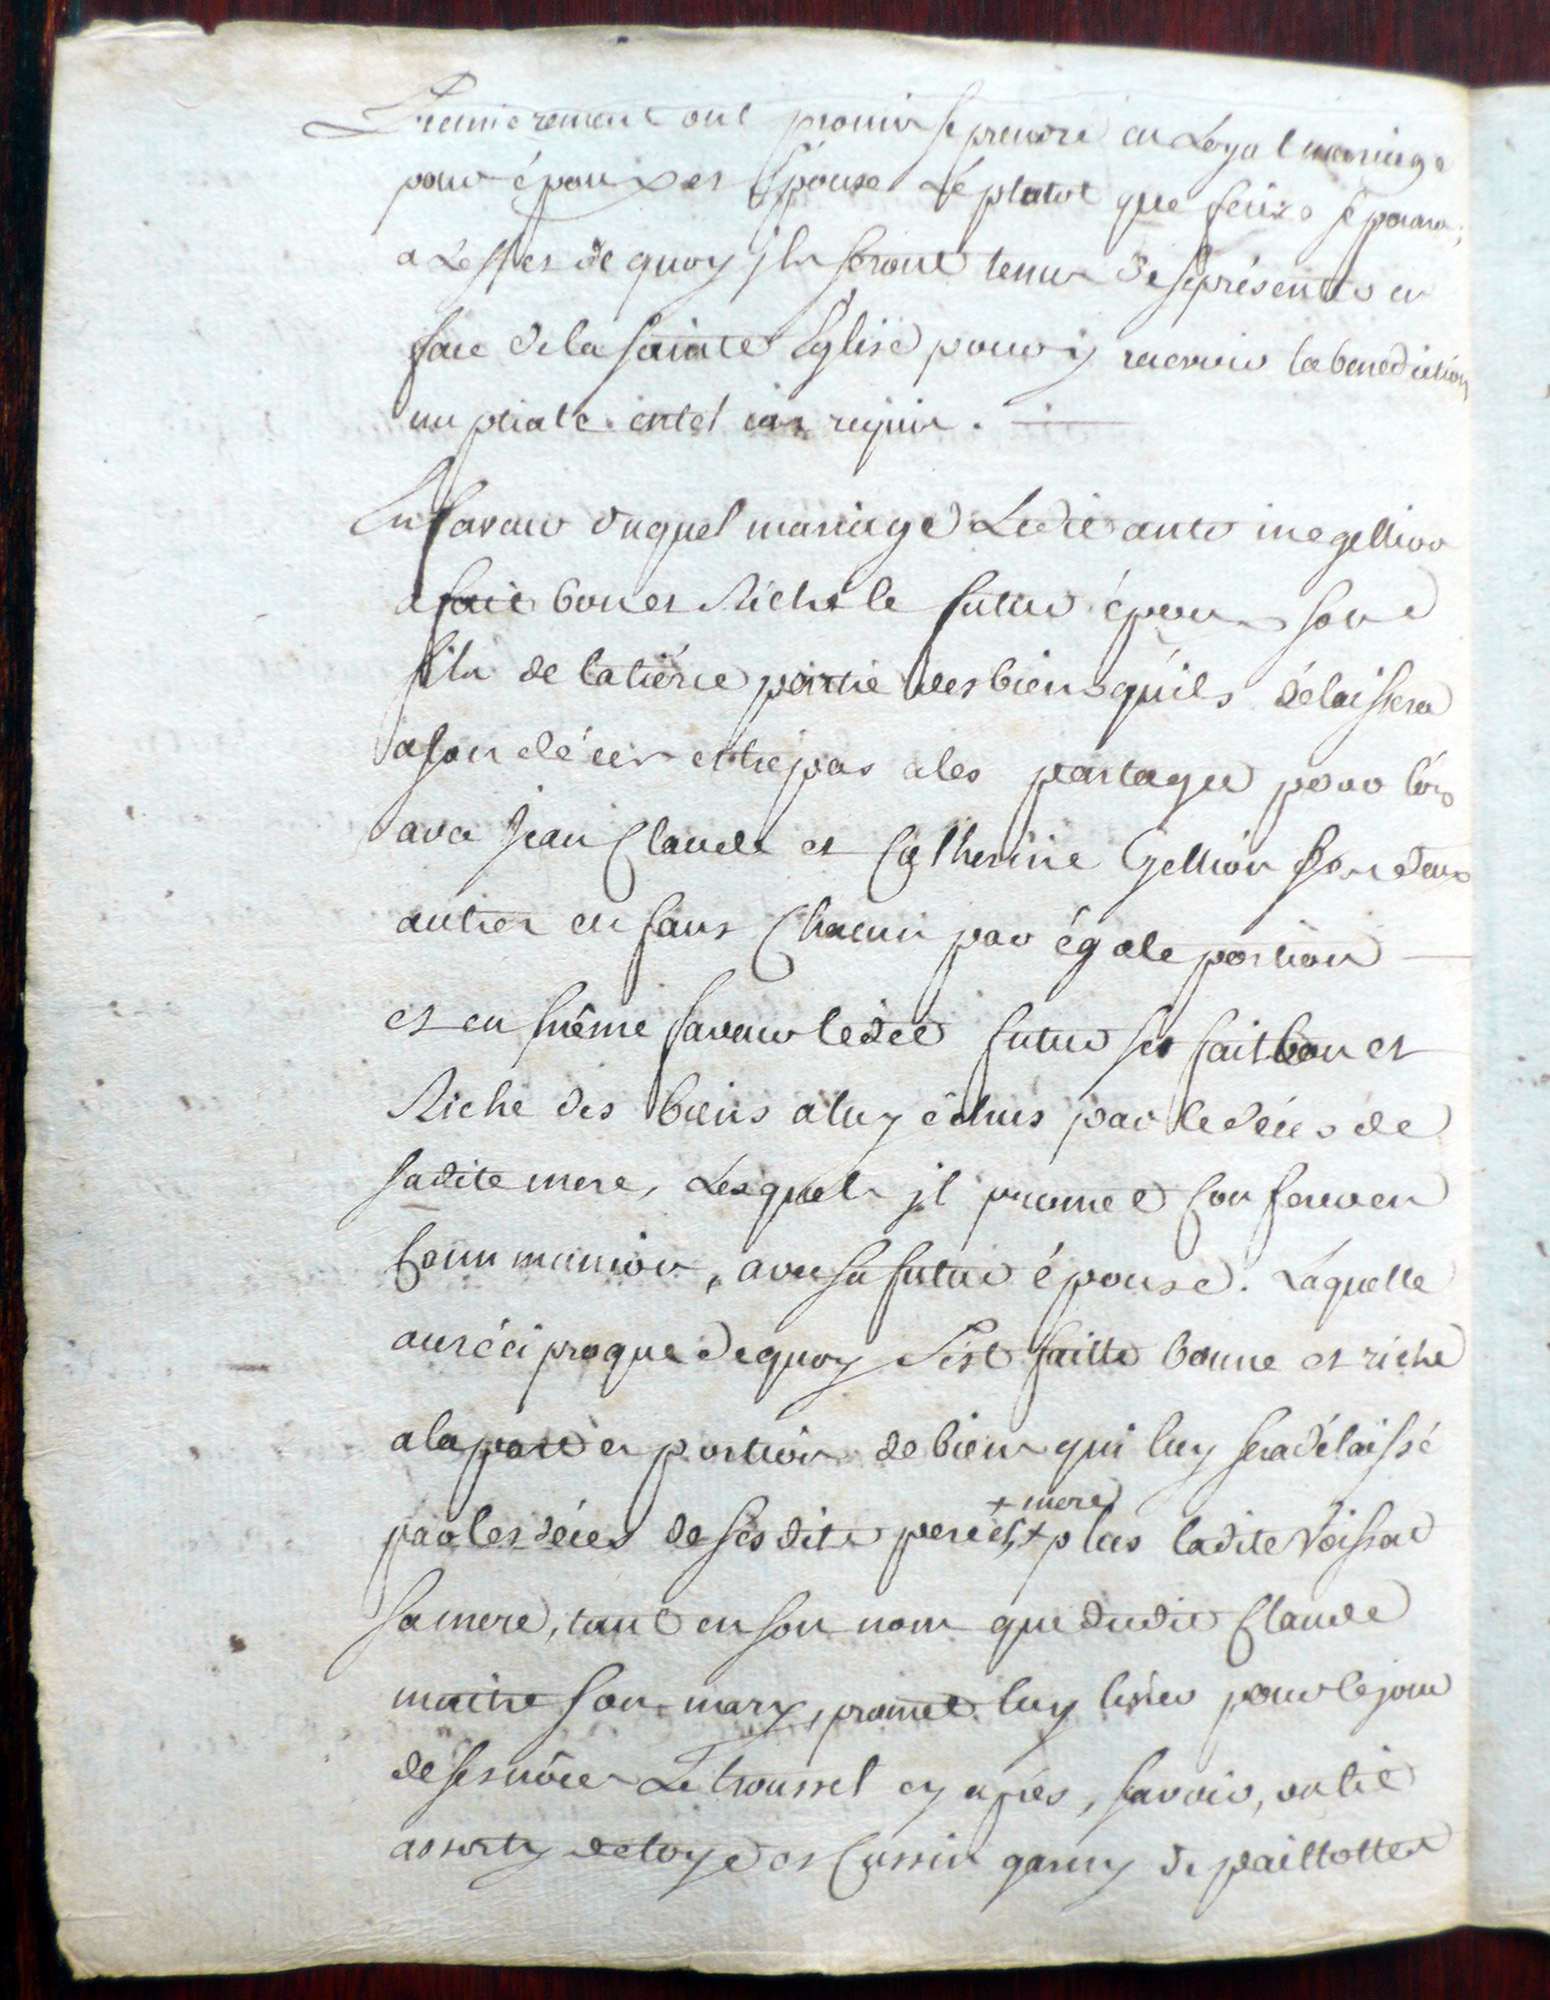 Premierement ont promis se prendre en Loyal mariage
pour époux et Epouse Le plutot que faire se poura,
a L'effet de quoy jls seront tenus de se présenter en
face de la sainte Eglise pour y recevoir la benediction
nuptiale entel cas requise.
En faveur duquel mariage Ledit antoine gellion
a fait bon et Riche le futur époux son
fils de la tiérce partie des biens qu'ils délaissera
a son décès et trépas a les partager pour lors
avec Jean Claude et Catherine Gellion ses deux
autres enfans Chacun par égale portion
et en même faveur ledit futur s'est fait bon et
Riche des biens a luy échus par le décès de
sadite mere, Lesquels jl promet Conferer en
Communion, avec sa future épouse. Laquelle
au réciproque de quoy s'est faitte bonne et riche
a la part et portion de biens qui luy sera délaissé
par les décès de ses dits pere et + plus ladite Voissat
+ mere
sa mere, tant en son nom que dudit Claude
maitre son mary, promet luy livrer pour le jour
de ses nôces Le troussel cy aprés, savoir, un lit
assorty de toye et Cussin garny de paillottes